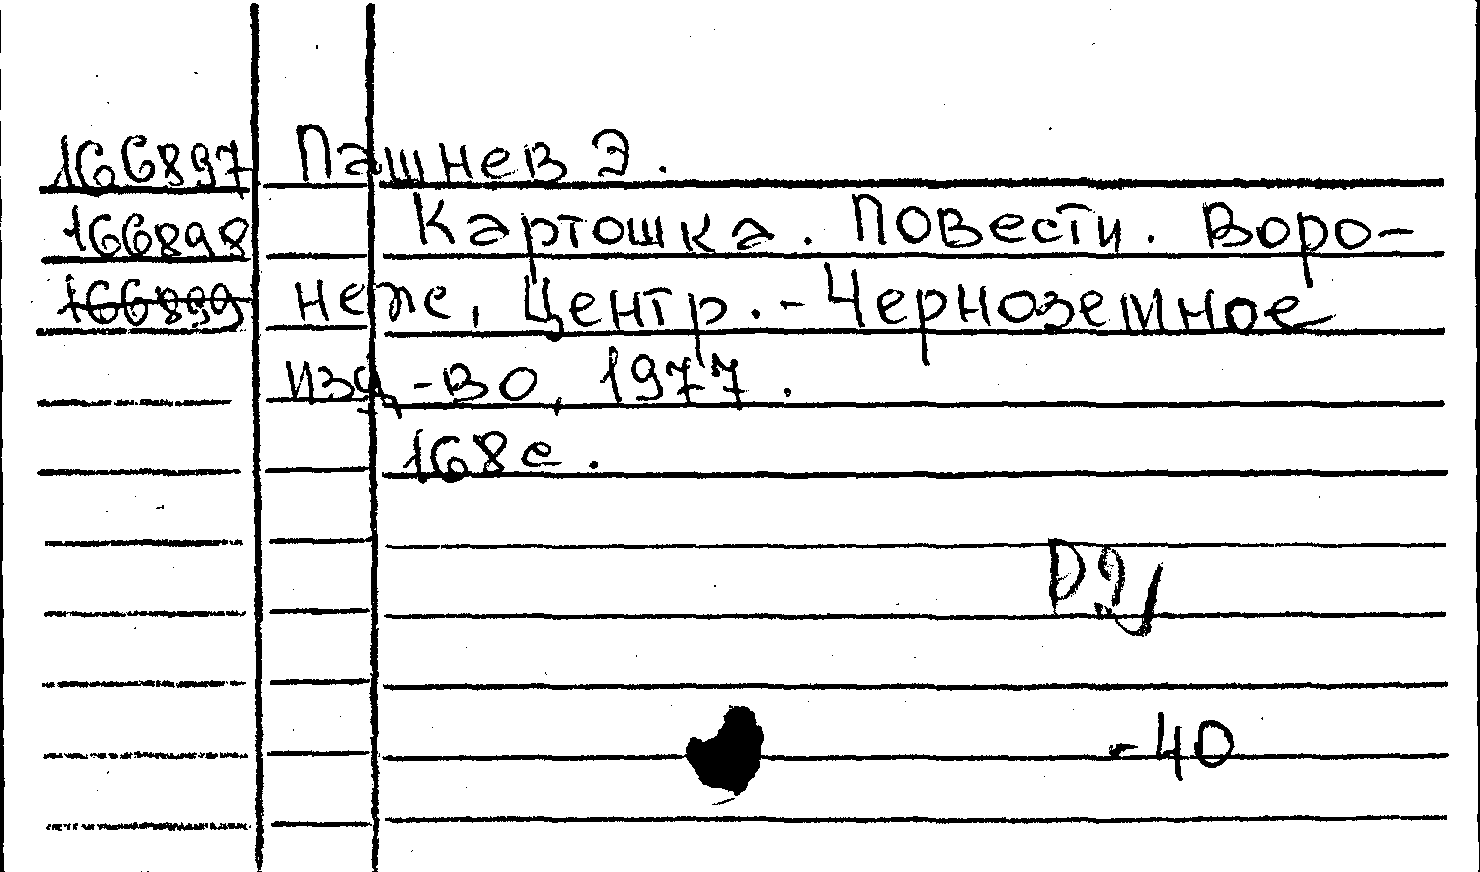 166897 Пашнев Э.
166898 Картошка. Повести. Воро-
166899 неж, Центр.-Черноземное
изд-во, 1977.
168с.
-40